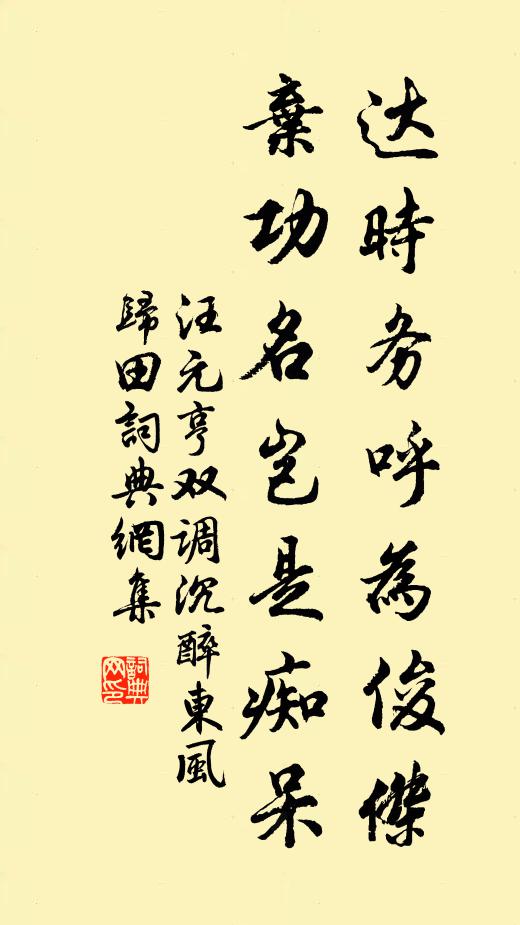 达時务呼為俊傑
棄功名岂是痴呆
汪元亨双调沉醉東風
歸田詞典網集
詞典
网印